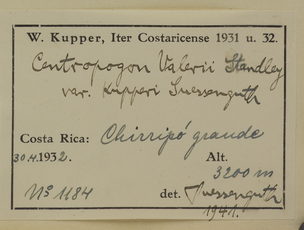 W. Kupper, Iter Costaricense 1931 u. 32.
Centropogon Valerii Standley
var. Kupperi Suessenguth
Costa Rica: Chirripó grande
30.4.1932. Alt.
3200 m
No 1184 det. Suessenguth
1941.